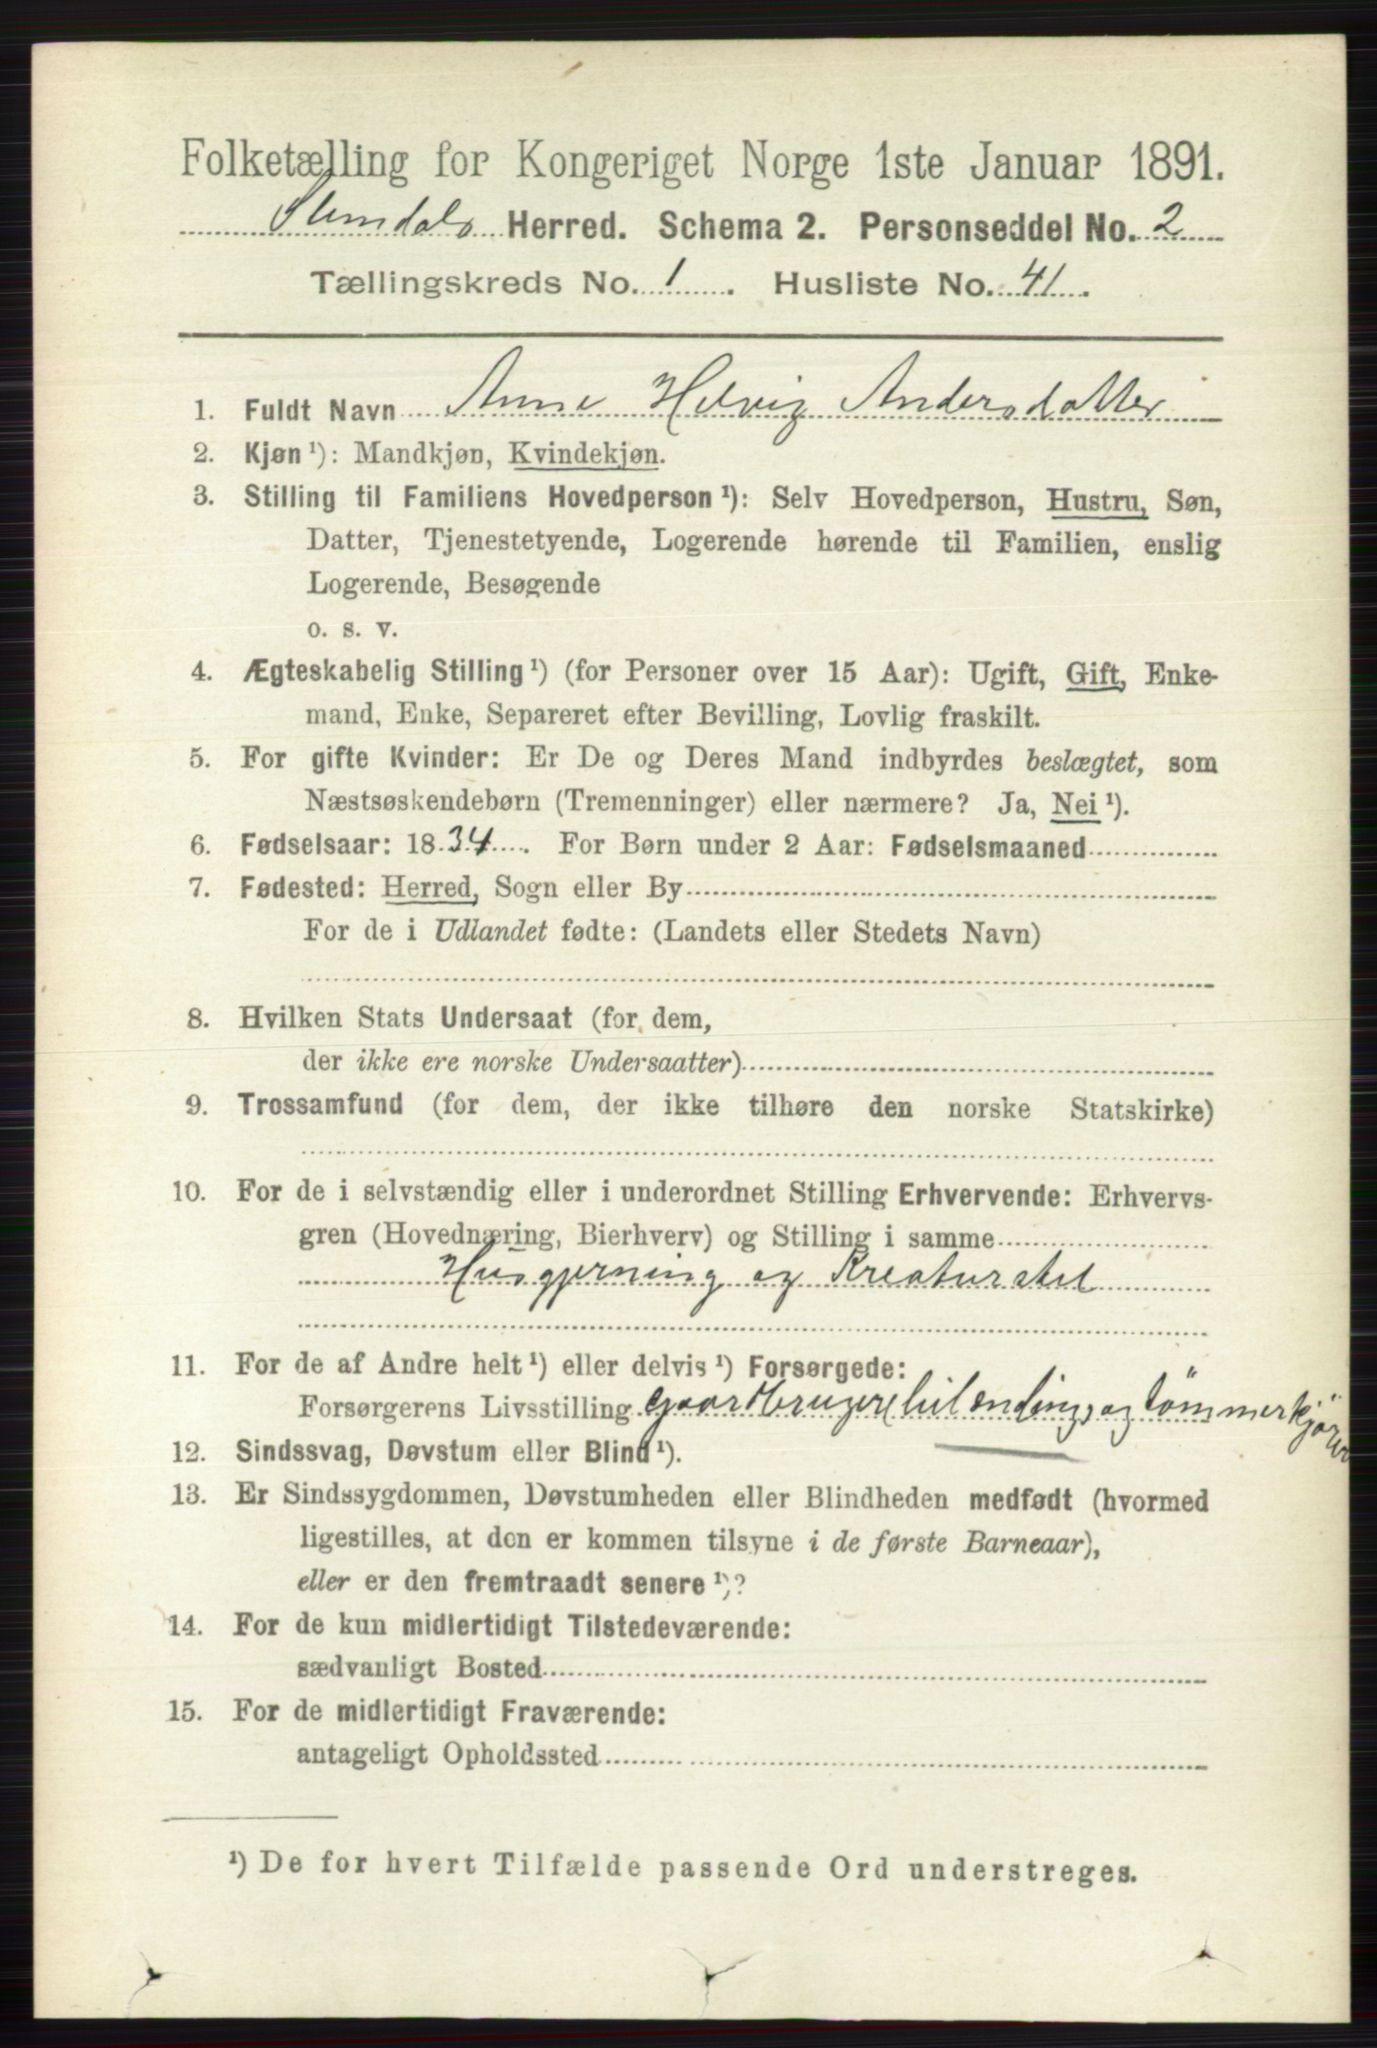 Folketælling for Kongeriget Norge 1ste Januar 1891.
Slemdals Herred. Schema 2. Personseddel No. 2
Tællingskreds No. 1. Husliste No. 41.
1. Fuldt Navn Anne Helvig Andersdatter
2. Kjøn ¹): Mandkjøn, Kvindekjøn.
3. Stilling til Familiens Hovedperson ¹): Selv Hovedperson, Hustru, Søn,
Datter, Tjenestetyende, Logerende hørende til Familien, enslig
Logerende, Besøgende
o. s. v.
4. Ægteskabelig Stilling ¹) (for Personer over 15 Aar): Ugift, Gift, Enke-
mand, Enke, Separeret efter Bevilling, Lovlig fraskilt.
5. For gifte Kvinder: Er De og Deres Mand indbyrdes beslægtet, som
Næstsøskendebørn (Tremenninger) eller nærmere? Ja, Nei ¹).
6. Fødselsaar: 1834. For Børn under 2 Aar: Fødselsmaaned
7. Fødested: Herred, Sogn eller By
For de i Udlandet fødte: (Landets eller Stedets Navn)
8. Hvilken Stats Undersaat (for dem,
der ikke ere norske Undersaatter)
9. Trossamfund (for dem, der ikke tilhøre den norske Statskirke)
10. For de i selvstændig eller i underordnet Stilling Erhvervende: Erhvervs-
gren (Hovednæring, Bierhverv) og Stilling i samme
Husgjerning og Kreaturstel
11. For de af Andre helt ¹) eller delvis ¹) Forsørgede:
Forsørgerens Livsstilling Gaardbruger og tömmerkjörer
12. Sindssvag, Døvstum eller Blind ¹).
13. Er Sindssygdommen, Døvstumheden eller Blindheden medfødt (hvormed
ligestilles, at den er kommen tilsyne i de første Barneaar),
eller er den fremtraadt senere ¹)?
14. For de kun midlertidigt Tilstedeværende:
sædvanligt Bosted
15. For de midlertidigt Fraværende:
antageligt Opholdssted
¹) De for hvert Tilfælde passende Ord understreges.